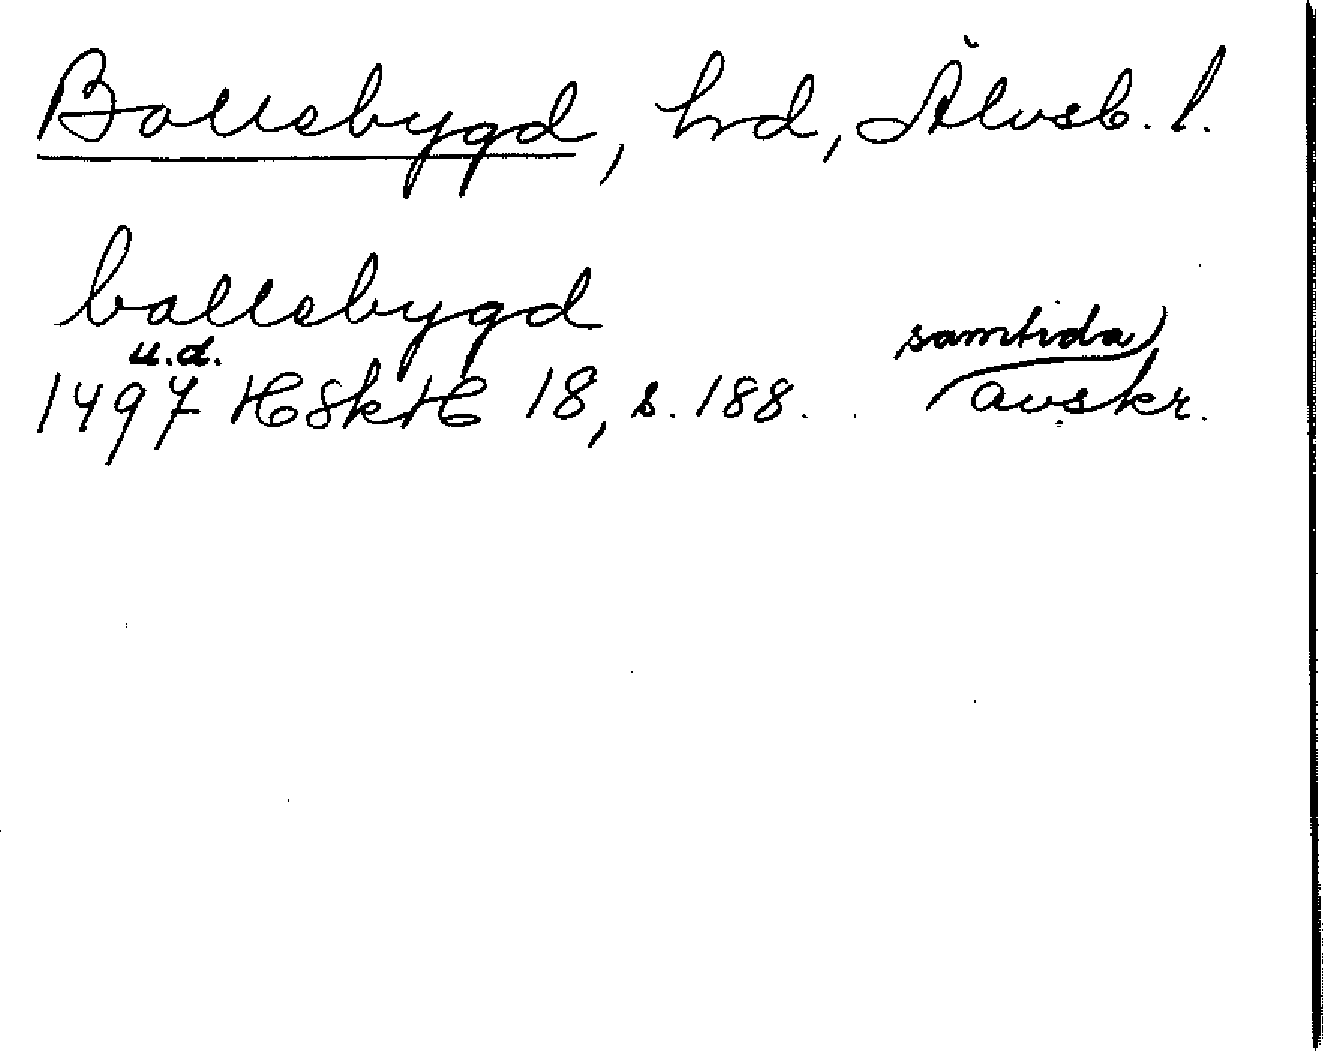 Bollsbygd, hd, Älvsb. l.
bollsbygd
u.d.
1497 HSkH 18, s. 188. samtida
avskr.